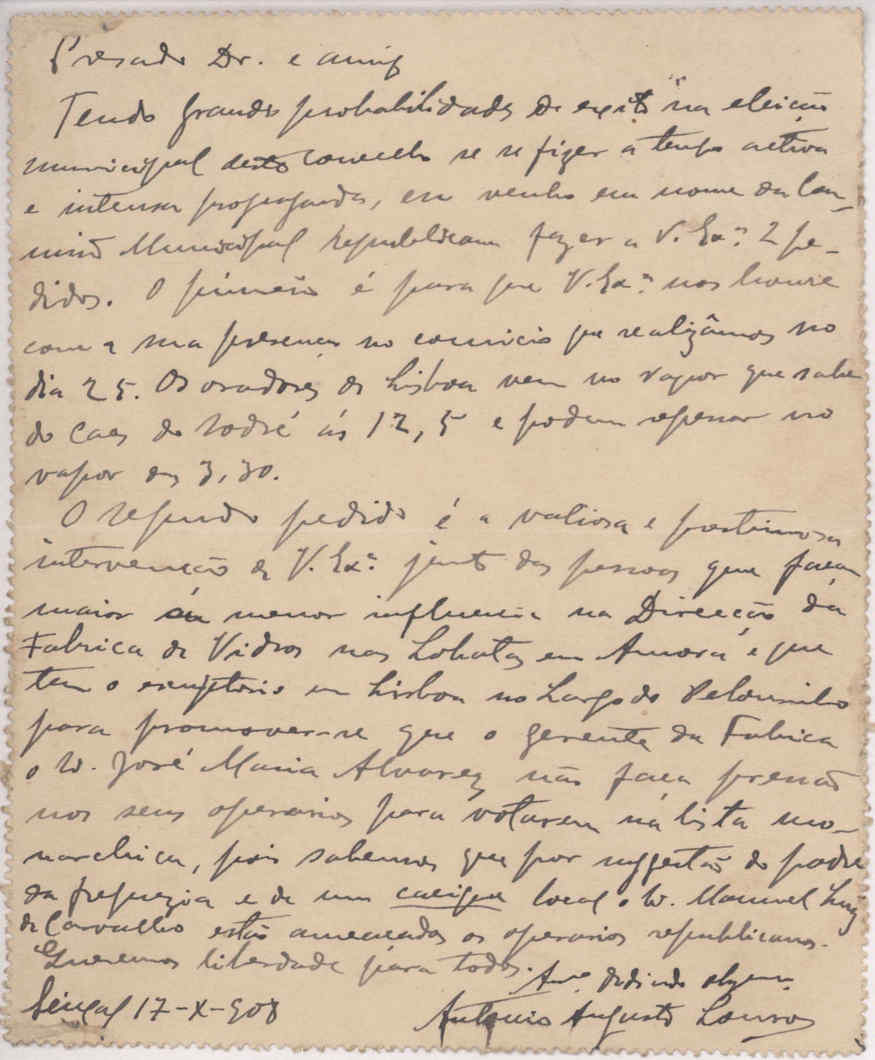 Presado Dr. e amig
Tendo grandes probabilidades de exito na eleição
municipal deste concelho se se fizer a tempo activa
e intensa propaganda, eu venho em nome da Com-
missão Municipal Republicana fazer a V. Exª. 2 pe-
didos. O primeiro é para que V. Exª. nos honre
com a sua presença no comicio que realizâmos no
dia 25. Os oradores de Lisboa vem no vapor que sahe
do Caes do Sodré ás 12,5 e podem regressar no
vapor das 3,30.
O segundo pedido é a valiosa e prestimosa
intervenção de V. Exª. junto das pessoas que façam
maior ou menor influencia na Direcção da
Fabrica de Vidros nas Lobatas em Amora e que
tem o escriptorio em Lisboa no Largo do Pelourinho
para promover-se que o gerente da Fabrica
o Sr. José Maria Alvarez não faça pressão
nos seus operarios para votarem na lista mo-
narchica, pois sabemos que por suggestão do padre
da freguezia e de um cacique local o Sr. Manuel Luiz
de Carvalho estão ameaçados os operarios republicanos.
Queremos liberdade para todos.
Amº. dedicado
Seixal 17-X-908
Antonio Augusto Louro